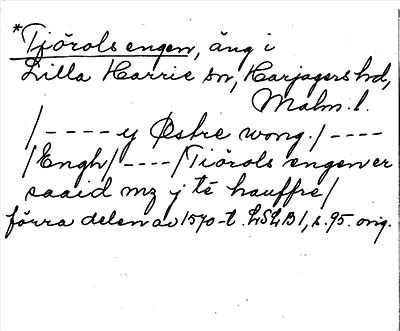 *Tjörols engen, äng i
Lilla Harrie sn, Harjagers hd,
Malm. l.
/ - - - - y Østre wong. / - - - -
/ Engh / - - - - / Tiörols engen er
saaid mz j té hauffre /
förra delen av 1570-t. LSLB1, s. 95. orig.